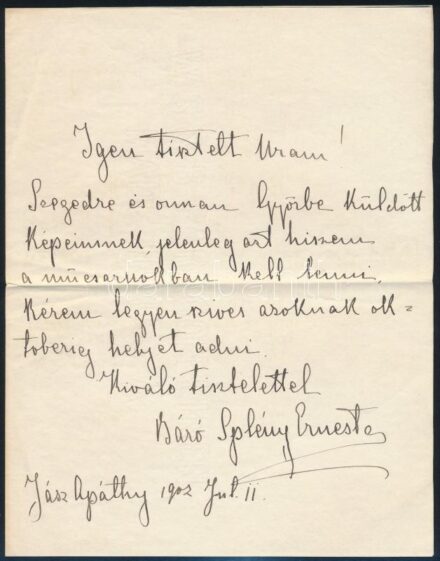 Igen tisztelt Uram!
Szegedre és onnan Győrbe küldött
képeimnek, jelenleg azt hiszem
a műcsarnokban kell lenni.
Kérem legyen szives azoknak ok=
toberig helyet adni.
Kiváló tisztelettel
Báró Splény Ernest
Jász Apáthy 1902 Jul. 11.
darabanth